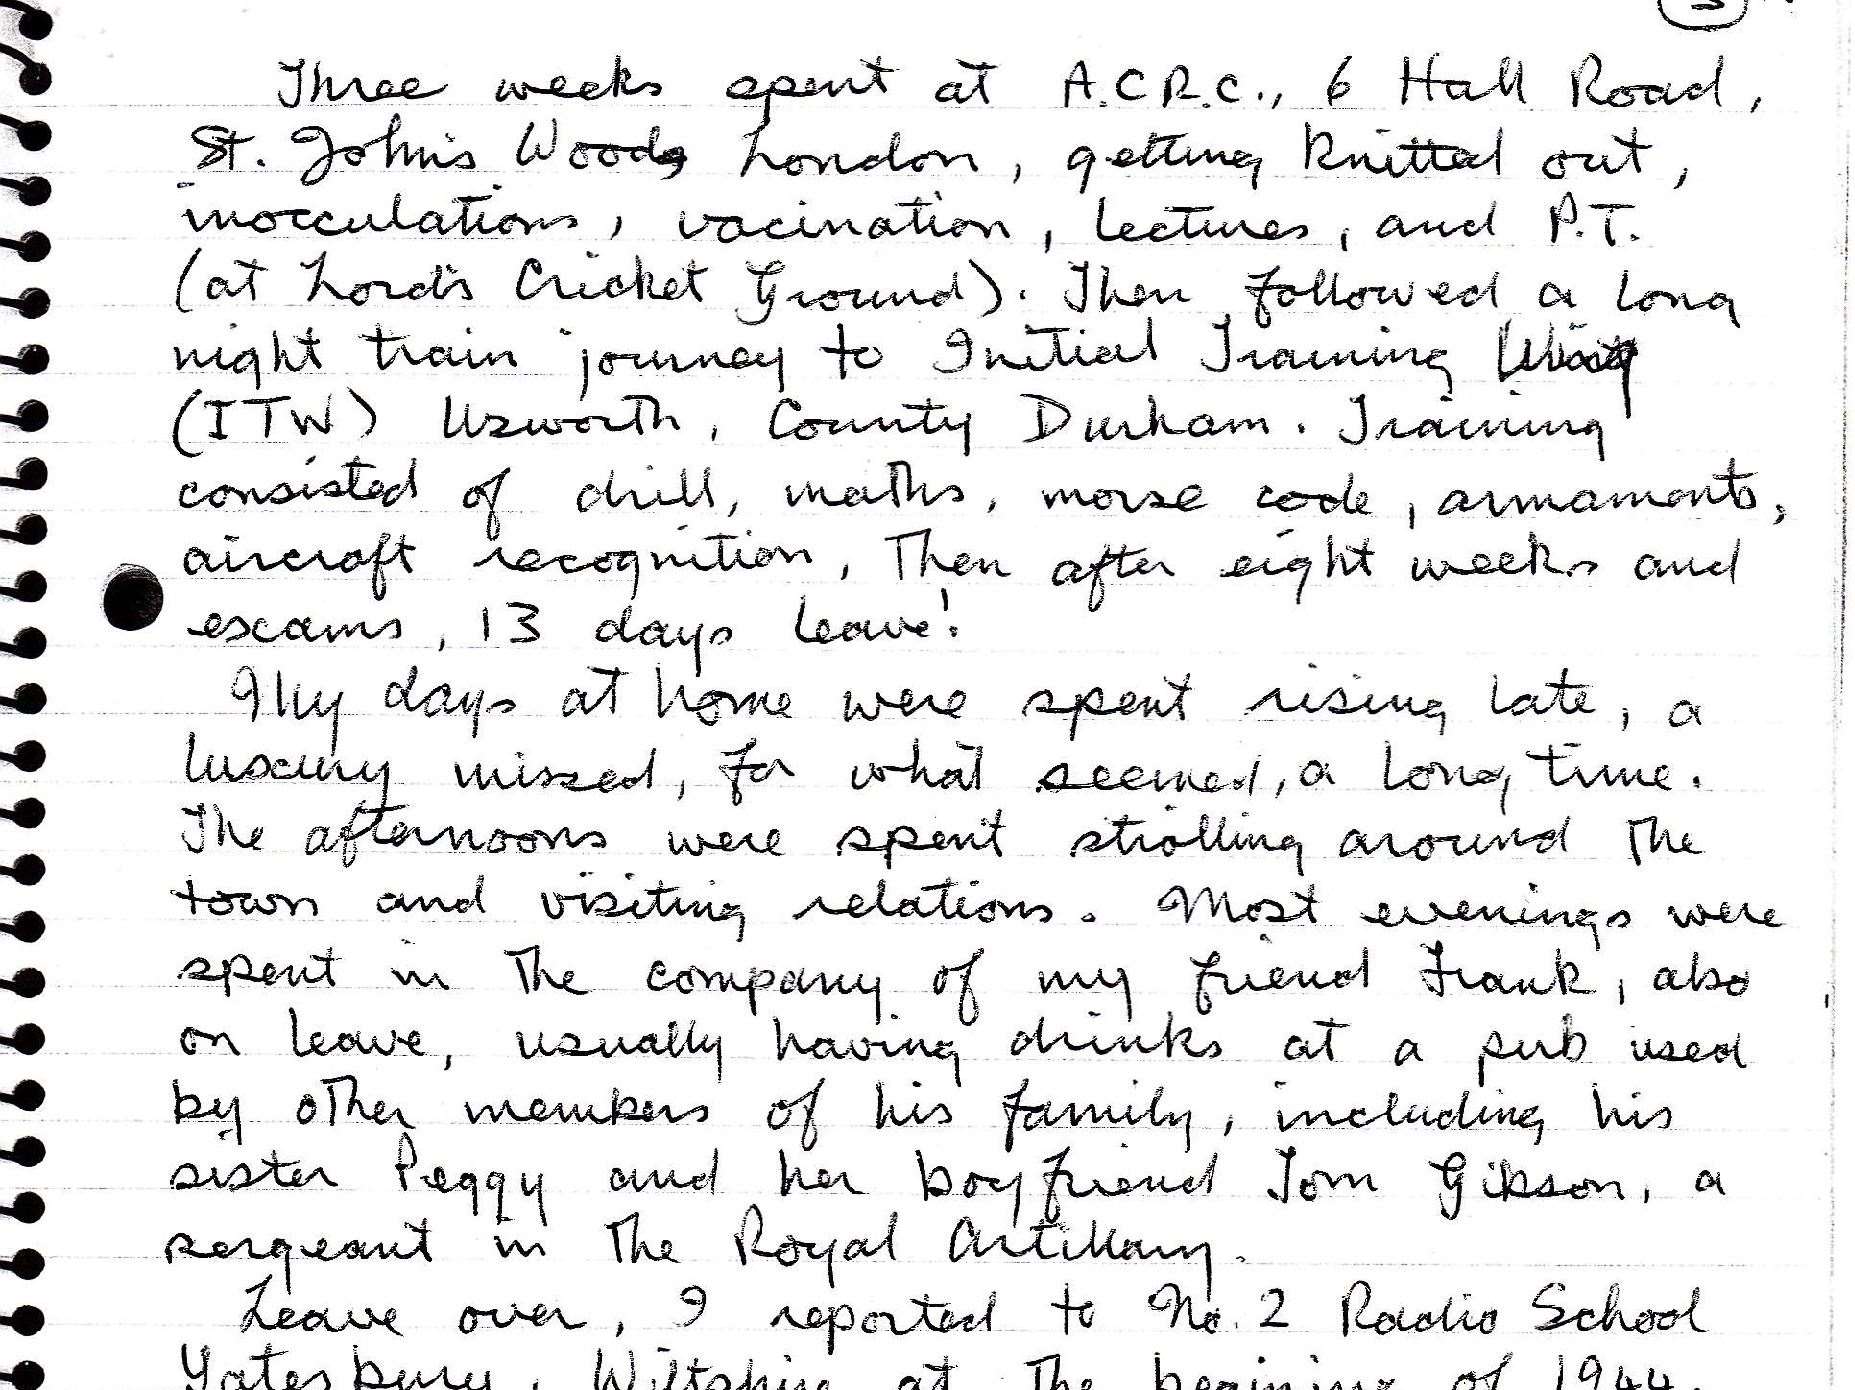 Three weeks spent at A.C.R.C., 6 Hall Road,
St. John's Wood, London, getting knitted out,
inocculations, vacination, lectures, and P.T.
(at Lord's Cricket Ground). Then followed a long
night train journey to Initial Training Wing
(ITW) Usworth, County Durham. Training
consisted of drill, maths, morse code, armaments,
aircraft recognition, Then after eight weeks and
exams, 13 days leave!
My days at home were spent rising late, a
luxury missed, for what seemed, a long time.
The afternoons were spent strolling around the
town and visiting relations. Most evenings were
spent in the company of my friend Frank, also
on leave, usually having drinks at a pub used
by other members of his family, including his
sister Peggy and her boyfriend Tom Gibson, a
sergeant in the Royal Artillary.
Leave over, I reported to No. 2 Radio School
Yatesbury, Wiltshire at the begining of 1944.